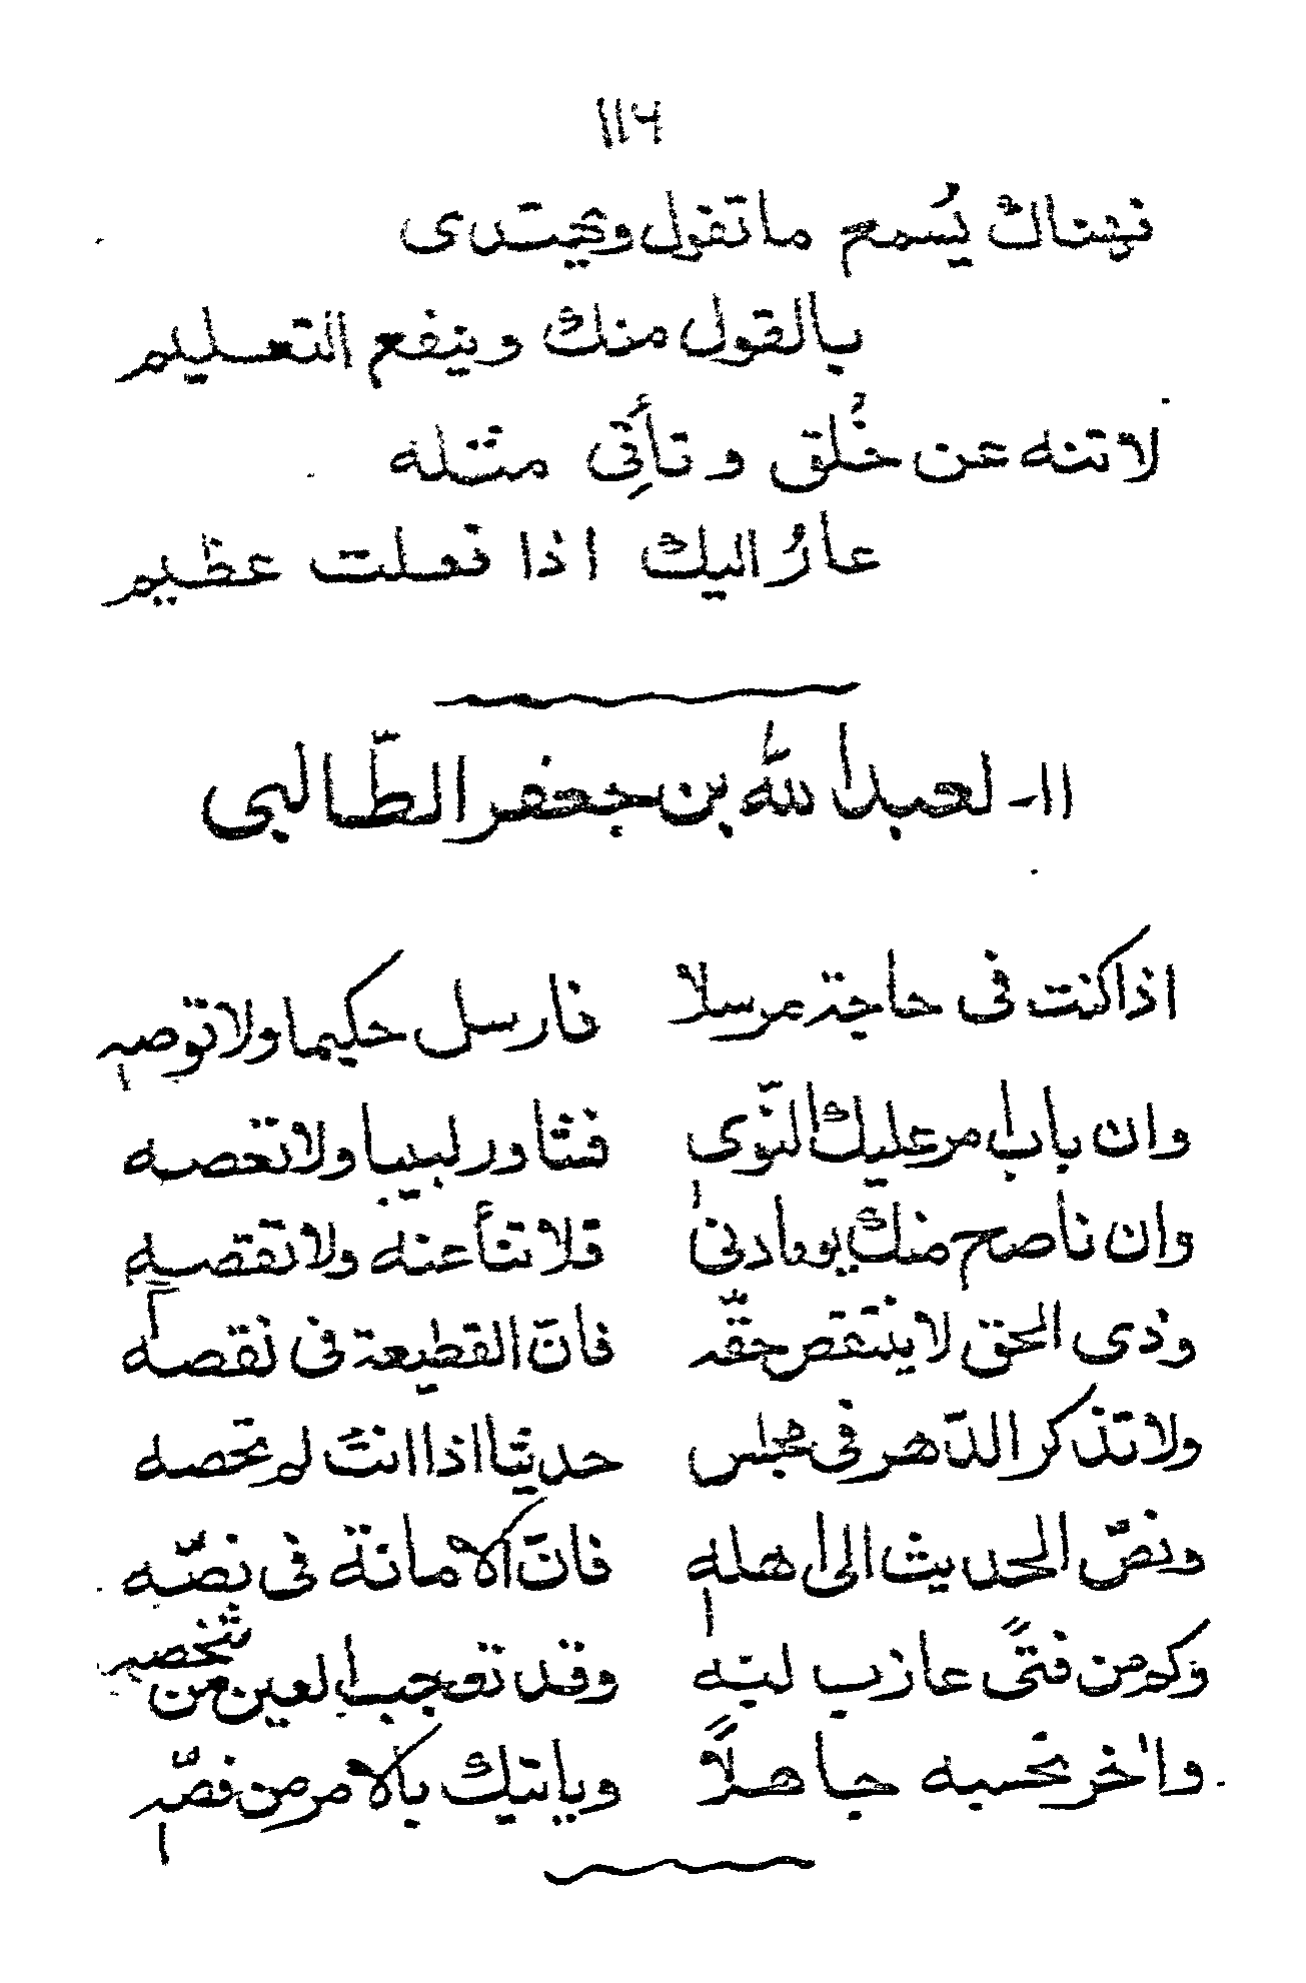 ١١٤
فهناك يُسمع ما تقول ويهتدى
بالقول منك وينفع التعليم
لاتنه عن خُلق وتأتِى مثله
عارُ اليك اذا فعلت عظيم
١١- لعبد الله بن جعفر الطّالبى
اذا كنت فى حاجة مرسلا فارسل حكيما ولا توصه
وان باب امر عليك التّوى فشاور لبيبا ولا تعصه
وان ناصح منك يوما دنى فلا تنأ عنه ولا تقصه
وذى الحق لا ينتقص حقّه فانّ القطيعة فى نقصه
ولا تذكر الدّهر فى مجلس حديثا اذا انت لم تحصه
ونصّ الحديث الى اهله فانّ الامانة فى نصّه
وكم من فتًى عازب لبّه وقد تعجب العين من شخصه
واٰخر تحسبه جاهلاً وياتيك بالامر من فصّه